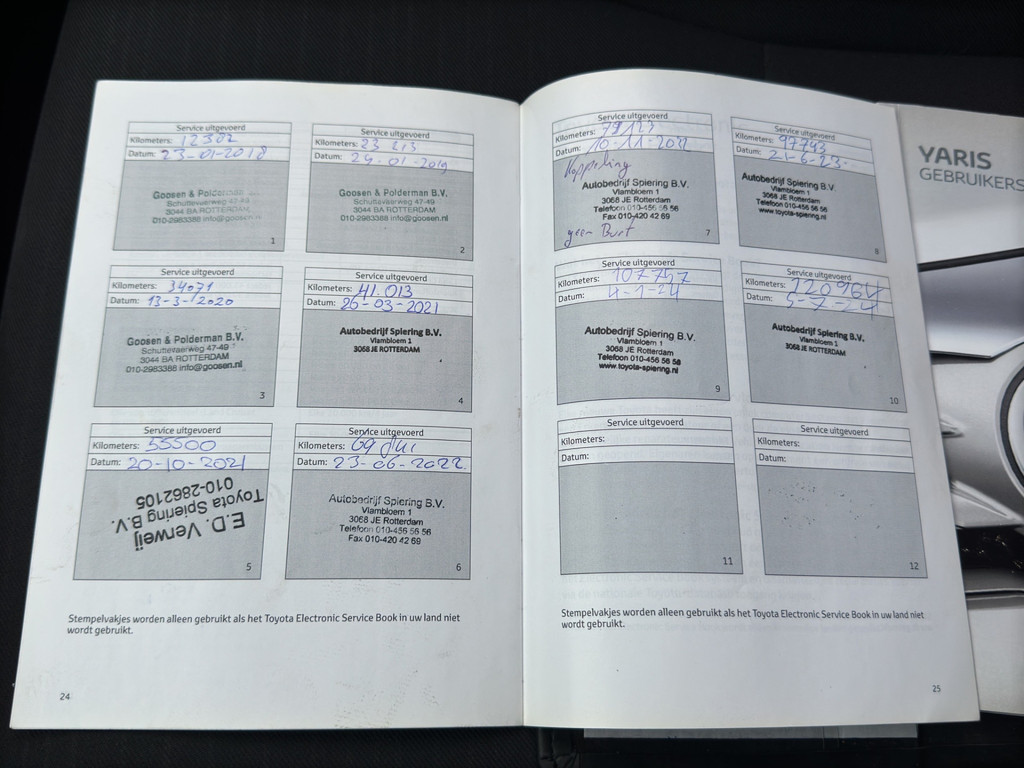 Service uitgevoerd
Kilometers: 12382
Datum: 23-01-2018
Goosen & Polderman
Schuttevaerweg 47-49
3044 BA ROTTERDAM
010-2983388 info@goosen.nl
1
Service uitgevoerd
Kilometers: 23 213
Datum: 24-01-2019
Goosen & Polderman B.V.
Schuttevaerweg 47-49
3044 BA ROTTERDAM
010-2983388 info@goosen.nl
2
Service uitgevoerd
Kilometers: 34071
Datum: 13-3-2020
Goosen & Polderman B.V.
Schuttevaerweg 47-49
3044 BA ROTTERDAM
010-2983388 info@goosen.nl
3
Service uitgevoerd
Kilometers: 41.013
Datum: 26-03-2021
Autobedrijf Spiering B.V.
Vlambloem 1
3068 JE ROTTERDAM
4
Service uitgevoerd
Kilometers: 55500
Datum: 20-10-2021
E.D. Verweij
Toyota Spiering B.V.
010-2862105
5
Service uitgevoerd
Kilometers: 69
Datum: 23-06-2022
Autobedrijf Spiering B.V.
Vlambloem 1
3068 JE Rotterdam
Telefoon 010-456 56 56
Fax 010-420 42 69
6
Stempelvakjes worden alleen gebruikt als het Toyota Electronic Service Book in uw land niet
wordt gebruikt.
24
Service uitgevoerd
Kilometers: 79123
Datum: 10-11-2022
Koppeling
Autobedrijf Spiering B.V.
Vlambloem 1
3068 JE Rotterdam
Telefoon 010-456 56 56
Fax 010-420 42 69
geen Burt
7
Service uitgevoerd
Kilometers: 97793
Datum: 21-6-23
Autobedrijf Spiering B.V.
Vlambloem 1
3068 JE Rotterdam
Telefoon 010-456 56 56
www.toyota-spiering.nl
8
Service uitgevoerd
Kilometers: 107747
Datum: 4-1-24
Autobedrijf Spiering B.V.
Vlambloem 1
3068 JE Rotterdam
Telefoon 010-456 56 56
www.toyota-spiering.nl
9
Service uitgevoerd
Kilometers: 120964
Datum: 5-7-24
Autobedrijf Spiering B.V.
Vlambloem 1
3068 JE ROTTERDAM
10
Service uitgevoerd
Kilometers:
Datum:
11
Service uitgevoerd
Kilometers:
Datum:
12
Stempelvakjes worden alleen gebruikt als het Toyota Electronic Service Book in uw land niet
wordt gebruikt.
25
YARIS
GEBRUIKERS